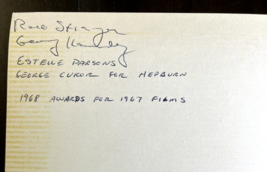 Rod Steiger
George Kennedy
ESTELLE PARSONS
GEORGE CUKOR FOR HEPBURN
1968 AWARDS FOR 1967 FILMS